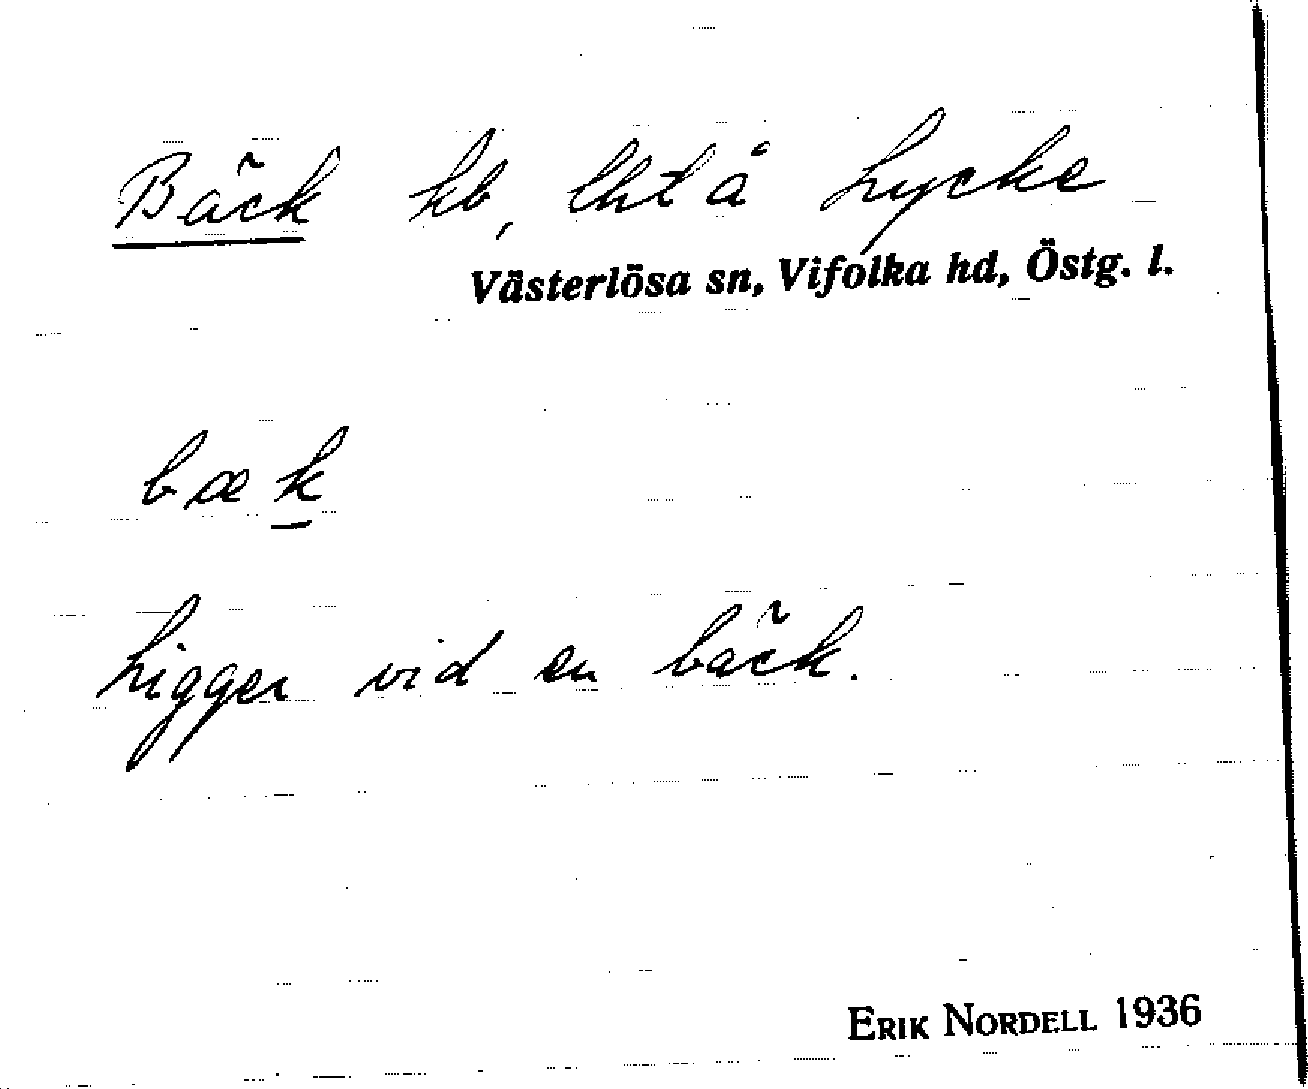 Bäck hb, lht å Lycke
Västerlösa sn, Vifolka hd, Östg. l.
bæk
Ligger vid en bäck.
ERIK NORDELL 1936